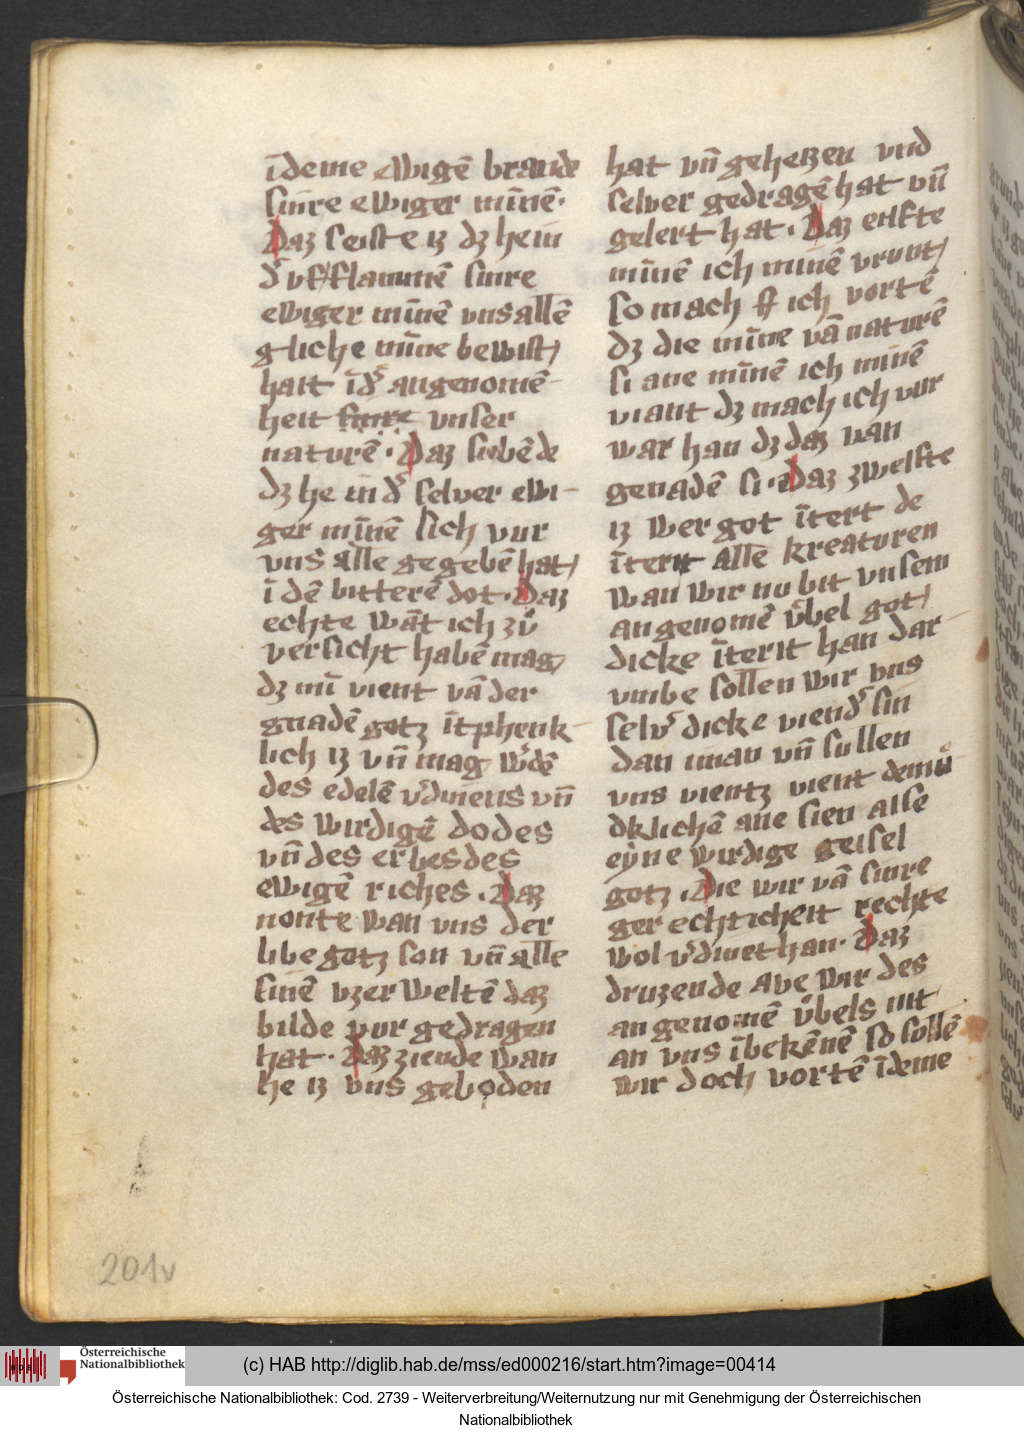 īdeme ewigē brande
sinre ewiger mīnē·
Daz seiste iz dz he in
d͛ vf flammē sinre
ewiger mīnē vns allē
gliche mīne bewist
hait ī d͛ angenomē
heit sinre vnser
naturē · Daz sibēde
dz he in d͛ selver ewi–
ger mīnē sich vur
vns alle gegebē hat
ī dē bitterē dot · Daz
echte wāt ich zů
versicht habē mag
dz mi vient vā der
gnadē gotz ītphenk
lich iz vn̄ mag w͛dē
des edelē v͛diniens vn̄
des wirdigē dodes
vn̄ des erbes des
ewigē riches · Daz
nonte wan vns der
libe gotz son vn̄ alle
sinē vzer weltē daz
bilde vur gedragen
hat · Daz ziende wan
he iz vns geboden
hat vn̄ geheizen vnd
selver gedragē hat vn̄
gelert hat · Daz eilfte
mīnē ich minē vrunt
so mach ich vortē
dz die mīne vā naturē
si ane mīnē ich minē
viant dz mach ich vur
war han dz daz van
genadē si · Daz zwelfte
iz wer got ītert de
ītert alle kreaturen
wan wir nu bit vnsem
angenomē v̊bel got
dicke īterit han dar
vmbe sollen wir vns
selv͛ dicke viend͛ sin
dan iman vn̄ sullen
vns vientz vient demů
dklichē ane sien alse
eẏne wirdige geisel
gotz · Die wir vā sinre
gerechticheit rechte
wol v͛dinet han · Daz
druzende ave wir des
angenomē v̊bels nit
an vns ī bekēnē so sollē
wir doch vortē īdeme
201v
Österreichische
Nationalbibliothek
(c) HAB http://diglib.hab.de/mss/ed000216/start.htm?image=00414
Österreichische Nationalbibliothek: Cod. 2739 - Weiterverbreitung/Weiternutzung nur mit Genehmigung der Österreichischen
Nationalbibliothek